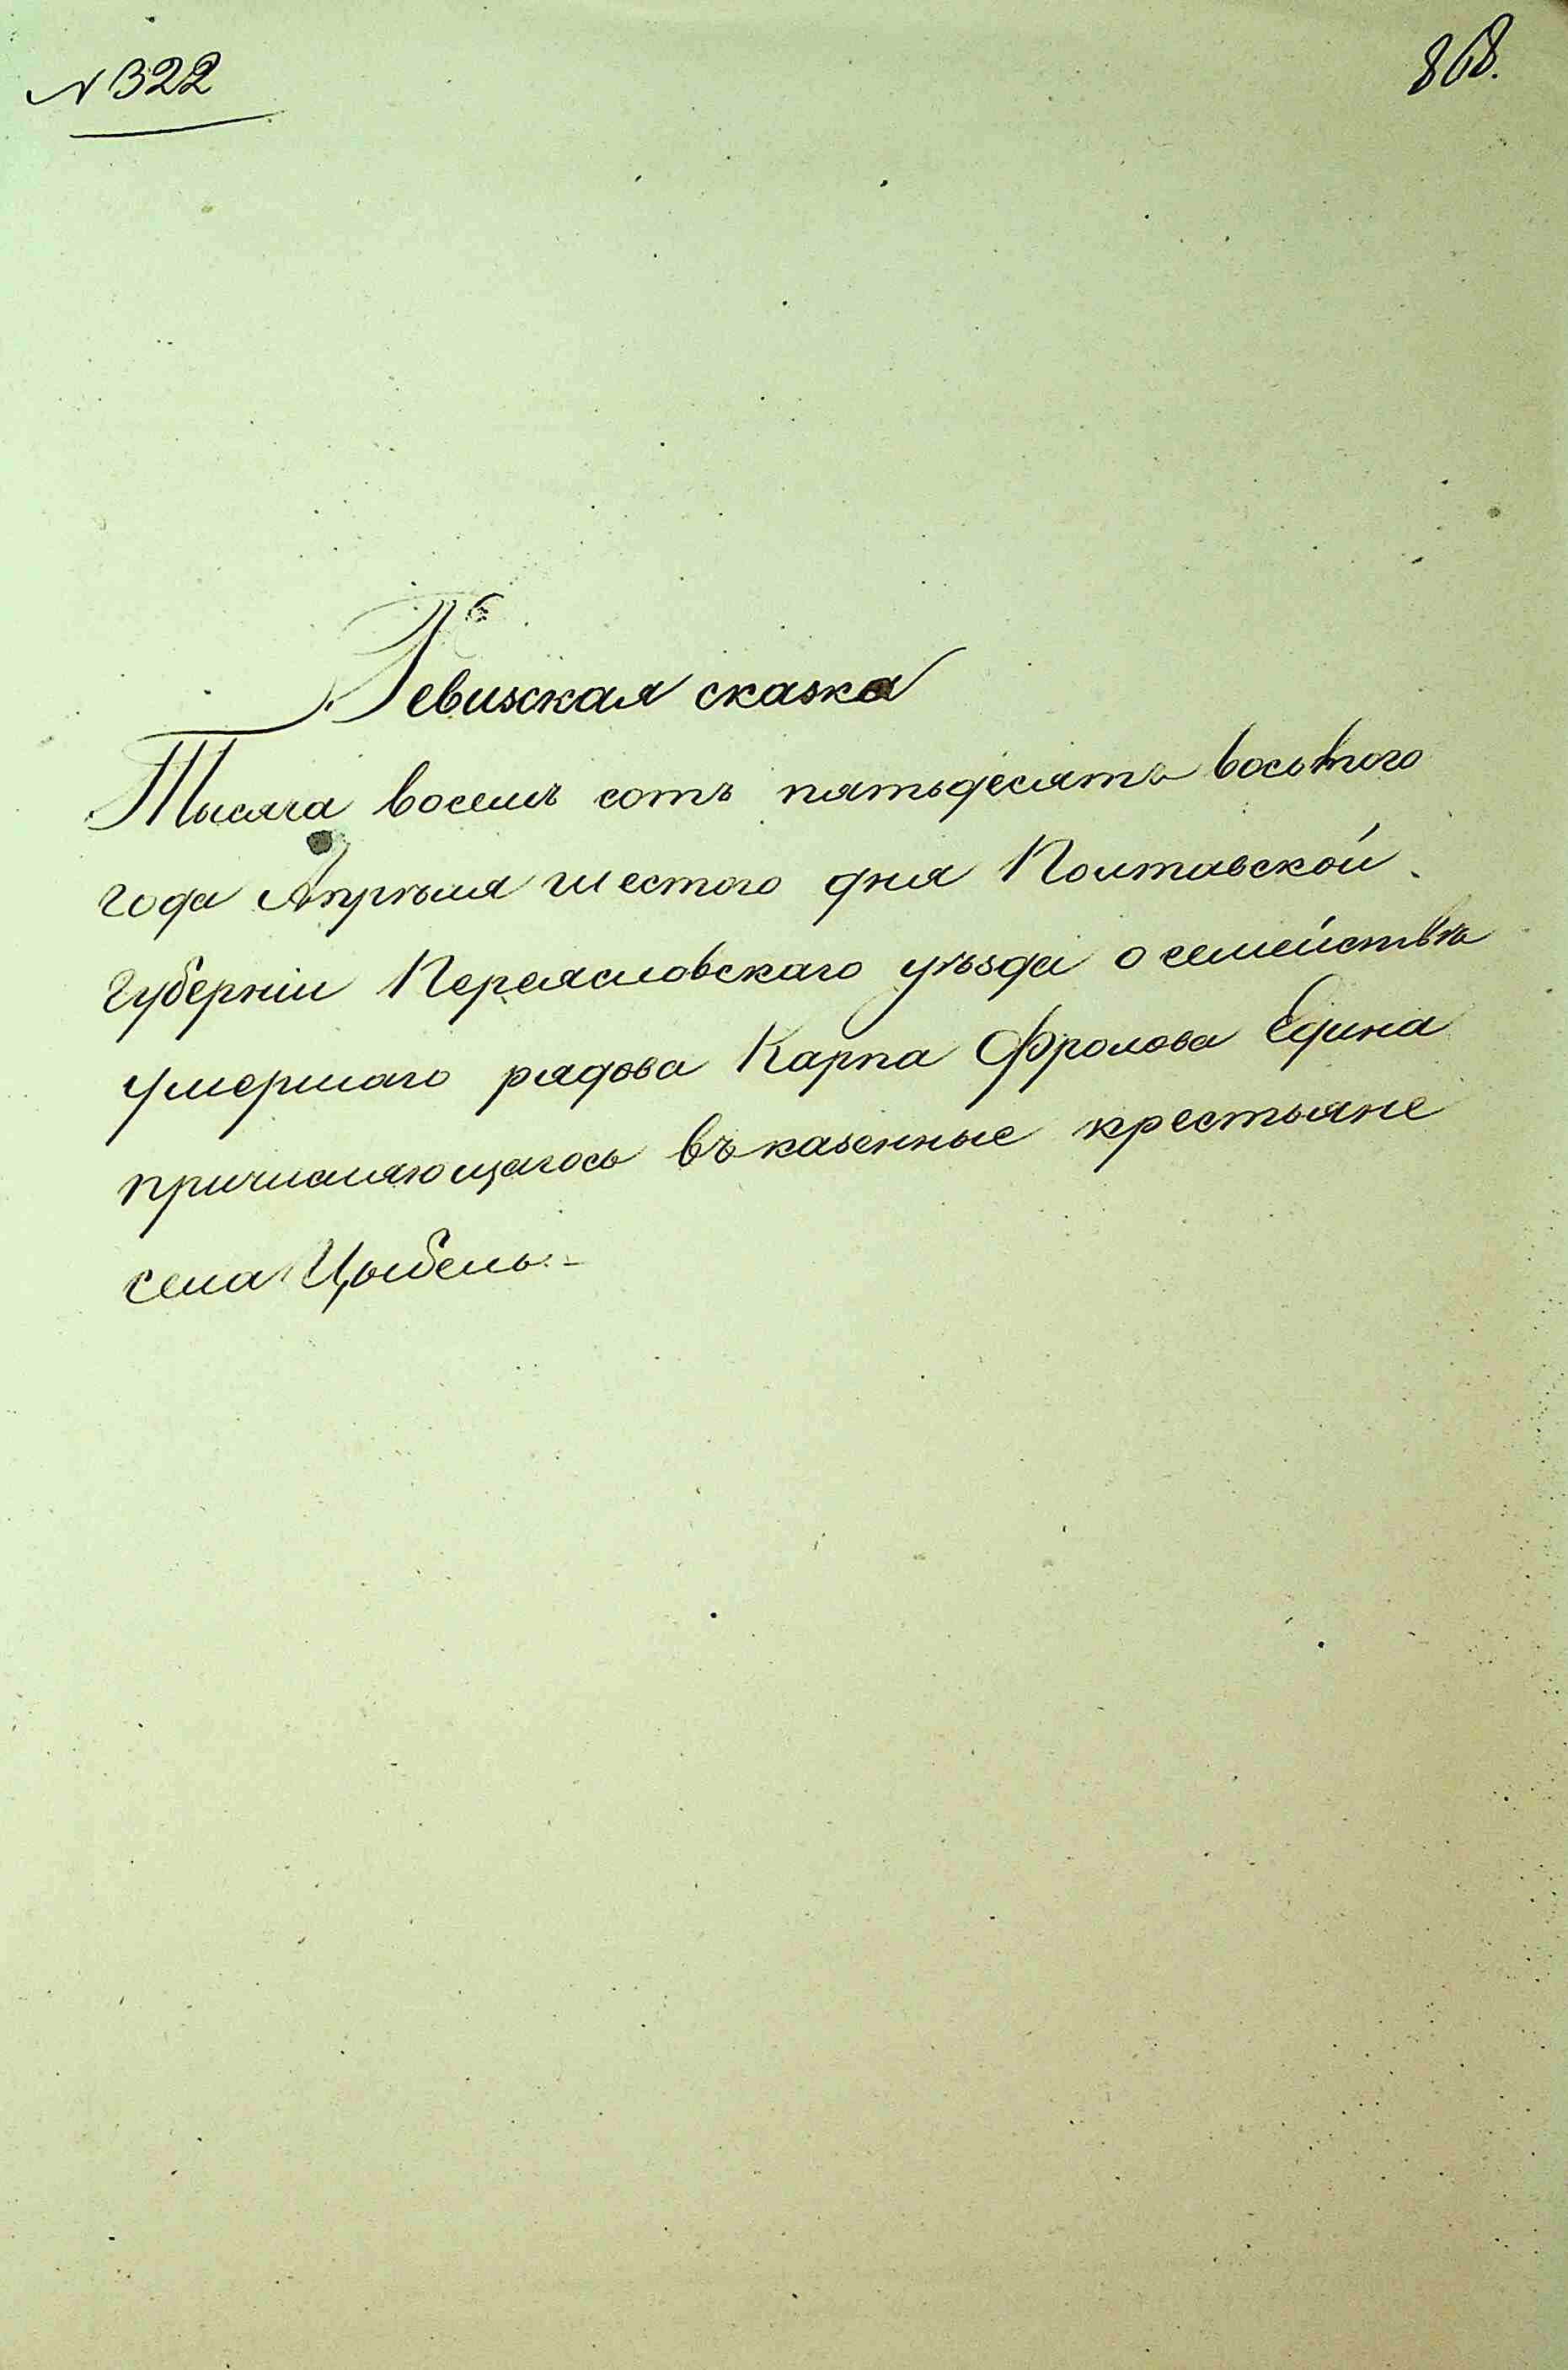 № 322
868.
Ревизская сказка
Тысяча восемъ сотъ пятьдесятъ восьмого
года Апрѣля шестого дня Полтавской
губерніи Переясловскаго уѣзда о семействѣ
умершаго рядова Карпа Фролова Едина
причисляющагось въ казенные крестьяне
села Цыбель.-